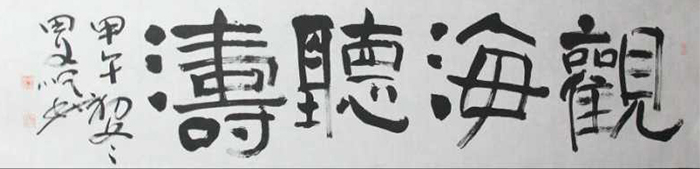 觀海聽濤
甲午初冬